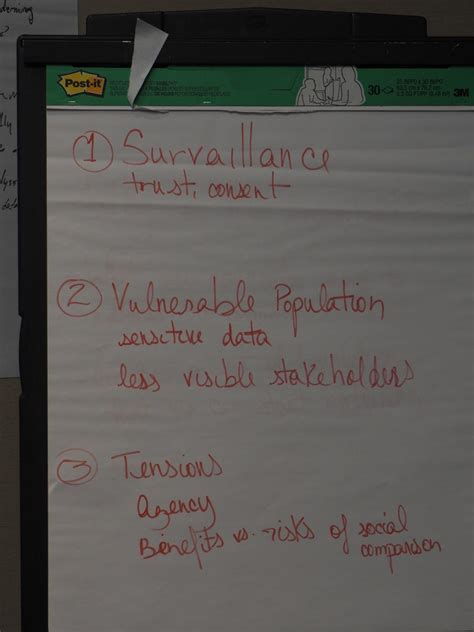 Post-it
30
3M
① Survaillance
trust, consent
② Vulnerable Population
sensitive data
less visible stakeholders
③ Tensions
Agency
Benefits vs. risks of social
comparison